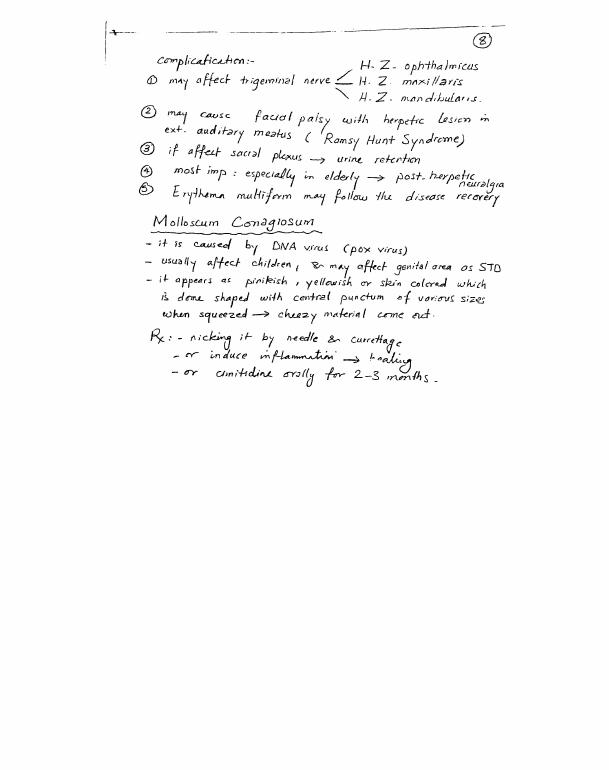 8
complication:-
H. Z. ophthalmicus
① may affect trigeminal nerve < H. Z. maxillaris
H. Z. mandibularis.
② may cause facial palsy with herpetic Lesion in
ext. auditory meatus ( Ramsy Hunt Syndrome)
③ if affect sacral plexus → urine retention
④ most imp : especially in elderly → post-herpetic
neuralgia
⑤ Erythema multiform may follow the disease recovery
Molloscum Conagiosum
- it is caused by DNA virus (pox virus)
- usually affect children, & may affect genital area as STD
- it appears as pinikish, yellowish or skin colored which
is dome shaped with central punctum of various sizes
when squeezed → cheezy material come out.
Rx: - nicking it by needle & currettage
- or induce inflammation → healing
- or cimitidine orally for 2-3 months.